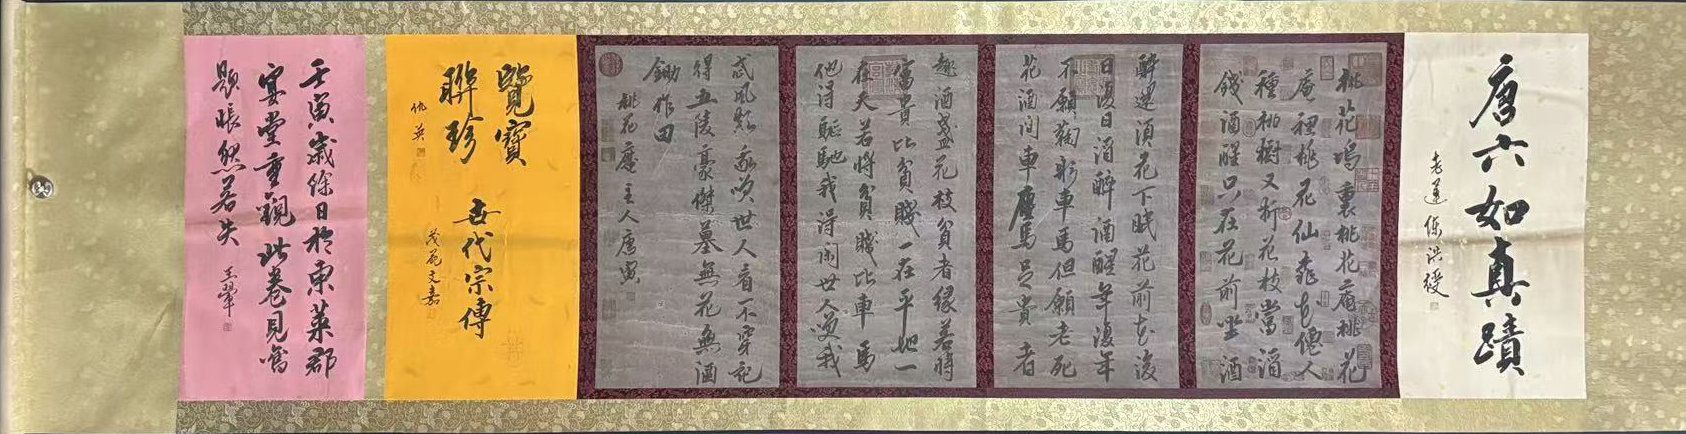 唐六如真蹟
老蓮陳洪綬
桃花塢裏桃花庵桃花
庵裡桃花仙桃花僊人
種桃樹又折花枝當酒
錢酒醒只在花前坐酒
醉還須花下眠花前花後
日復日酒醉酒醒年復年
不願鞠躬車馬但願老死
花酒间車塵馬足貴者
趣酒盞花枝貧者緣若將
富貴比貧賤一在平地一
在天若將貧賤比車馬
他得驅馳我得闲世人笑我
忒風颠我笑世人看不穿記
得五陵豪傑墓無花無酒
鋤作田
桃花庵主人唐寅
覽寶
聯珍
仇英
世代宗傳
茂苑文嘉
壬寅歲除日於東萊郡
宴堂重觀此卷見舊
題悵然若失
王鞏